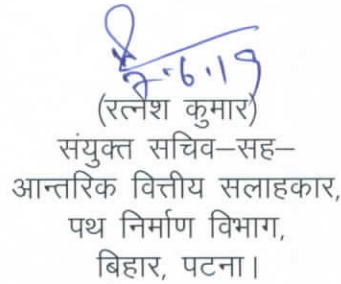 7.6.19
(रत्नेश कुमार)
संयुक्त सचिव–सह–
आन्तरिक वित्तीय सलाहकार,
पथ निर्माण विभाग,
बिहार, पटना।